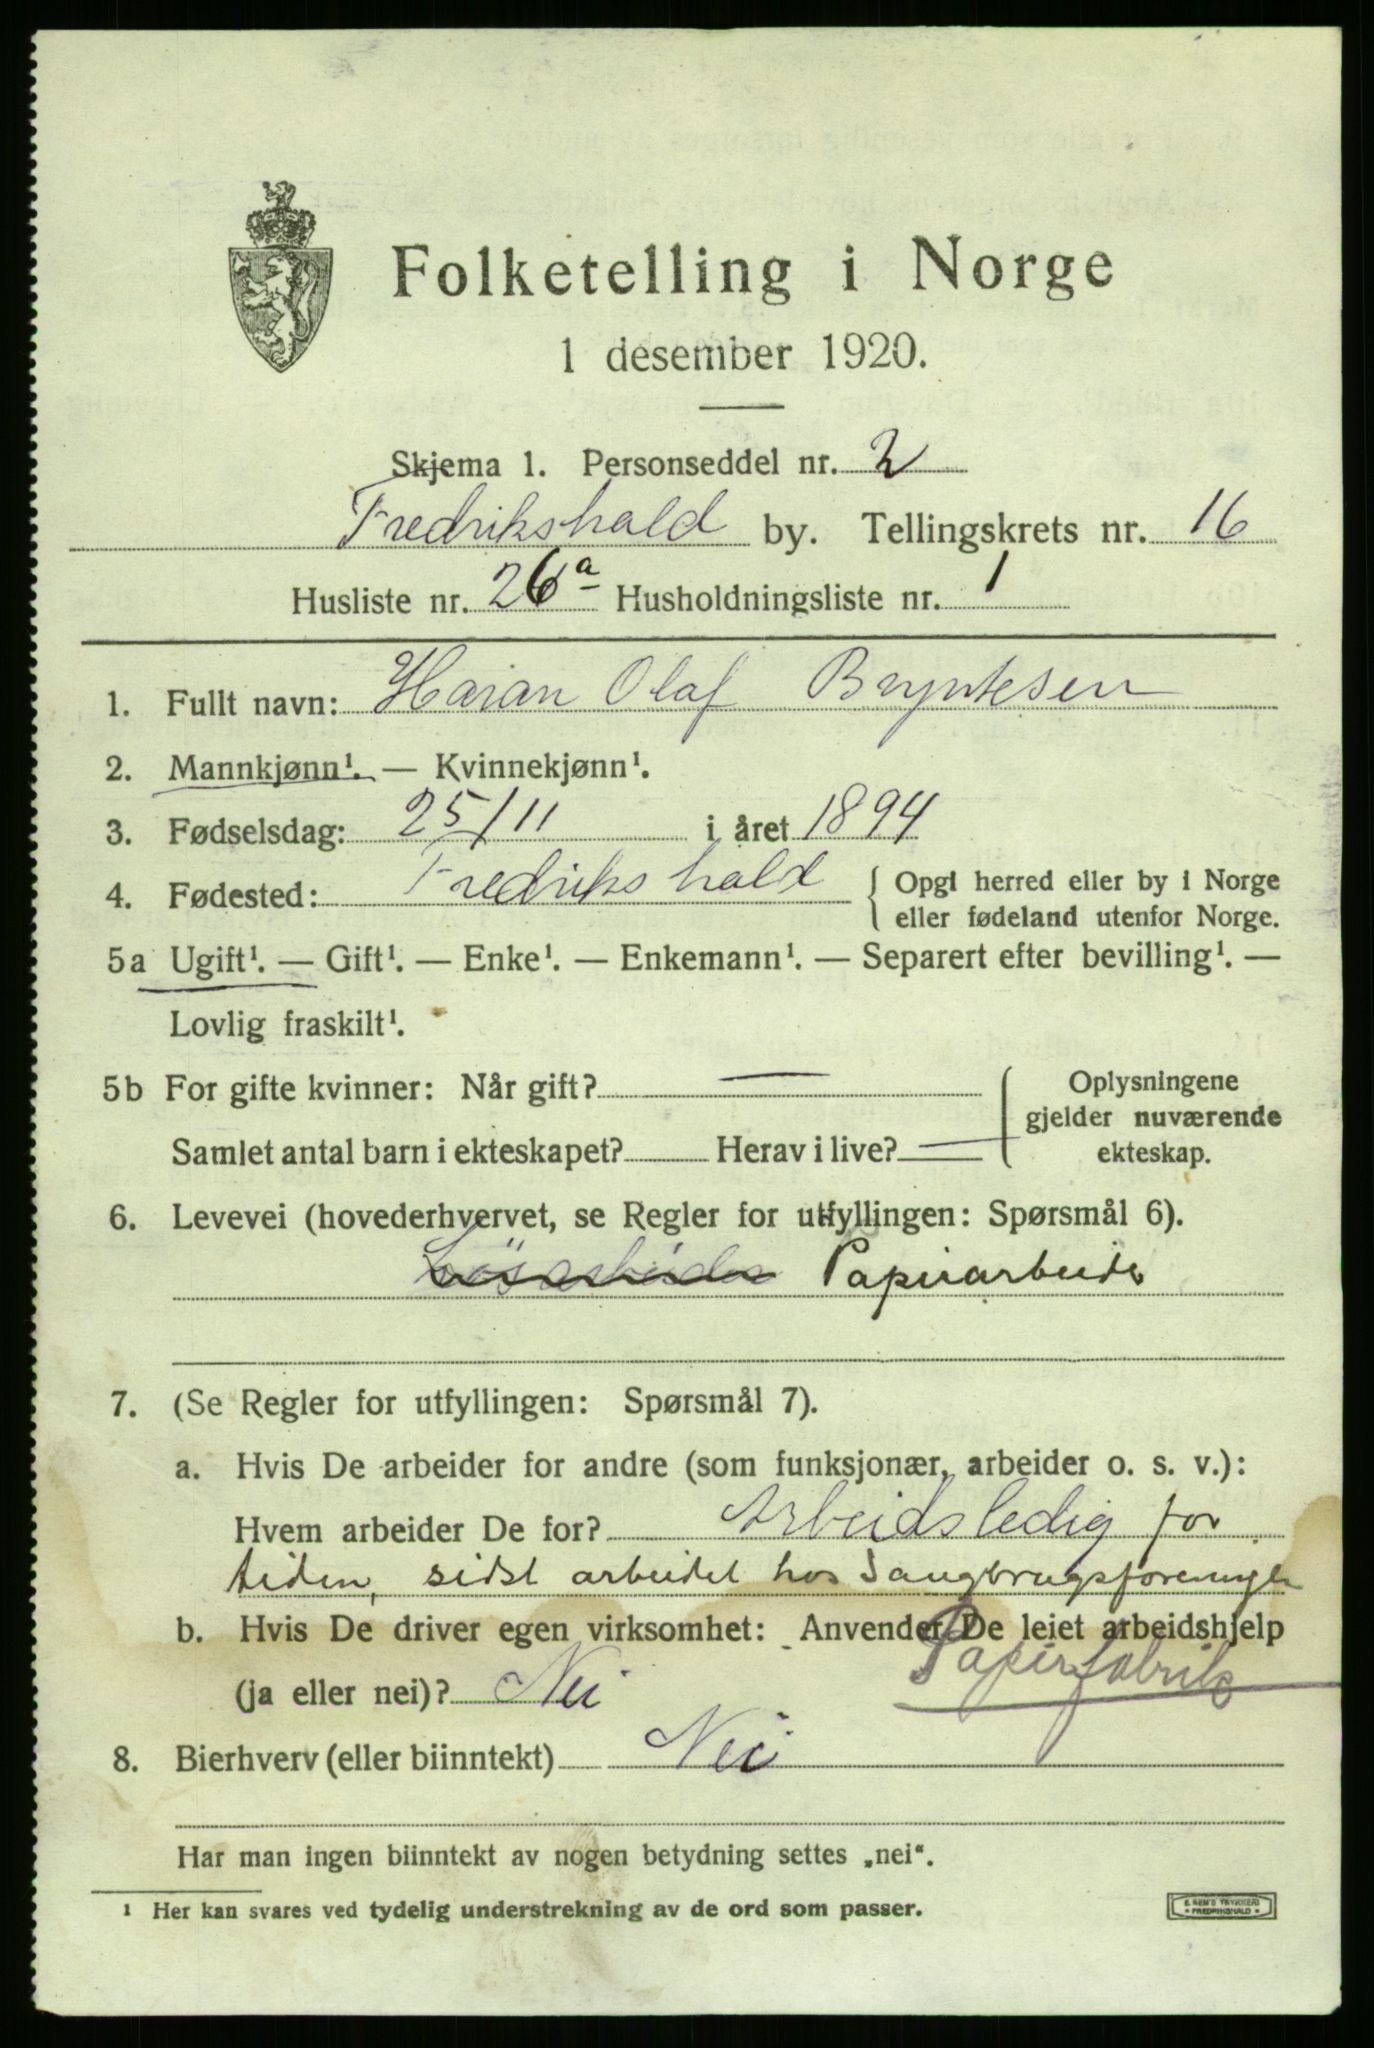 Folketelling i Norge
1 desember 1920.
Skjema 1. Personseddel nr. 2
Fredrikshald by. Tellingskrets nr. 16
Husliste nr. 26a Husholdningsliste nr. 1
1. Fullt navn: Haran Olaf Bryntesen
2. Mannkjønn¹. — Kvinnekjønn¹.
3. Fødselsdag: 25/11 i året 1894
4. Fødested: Fredrikshald { Opgi herred eller by i Norge
eller fødeland utenfor Norge.
5a Ugift¹. — Gift¹. — Enke¹. — Enkemann¹. — Separert efter bevilling¹. —
Lovlig fraskilt¹.
5b For gifte kvinner: Når gift? —
Samlet antal barn i ekteskapet? Herav i live? —
Oplysningene
gjelder nuværende
ekteskap.
6. Levevei (hovederhvervet, se Regler for utfyllingen: Spørsmål 6).
Løsarbeider Papirarbeider
7. (Se Regler for utfyllingen: Spørsmål 7).
a. Hvis De arbeider for andre (som funksjonær, arbeider o. s. v.):
Hvem arbeider De for? Arbeidsledig for
tiden, sidst arbeidet hos Saugbrugsforeningen
Papirfabrik
b. Hvis De driver egen virksomhet: Anvender De leiet arbeidshjelp
(ja eller nei)? Nei
8. Bierhverv (eller biinntekt) Nei
Har man ingen biinntekt av nogen betydning settes „nei“.
¹ Her kan svares ved tydelig understrekning av de ord som passer.
E. SEM'S TRYKKERI
FREDRIKSHALD